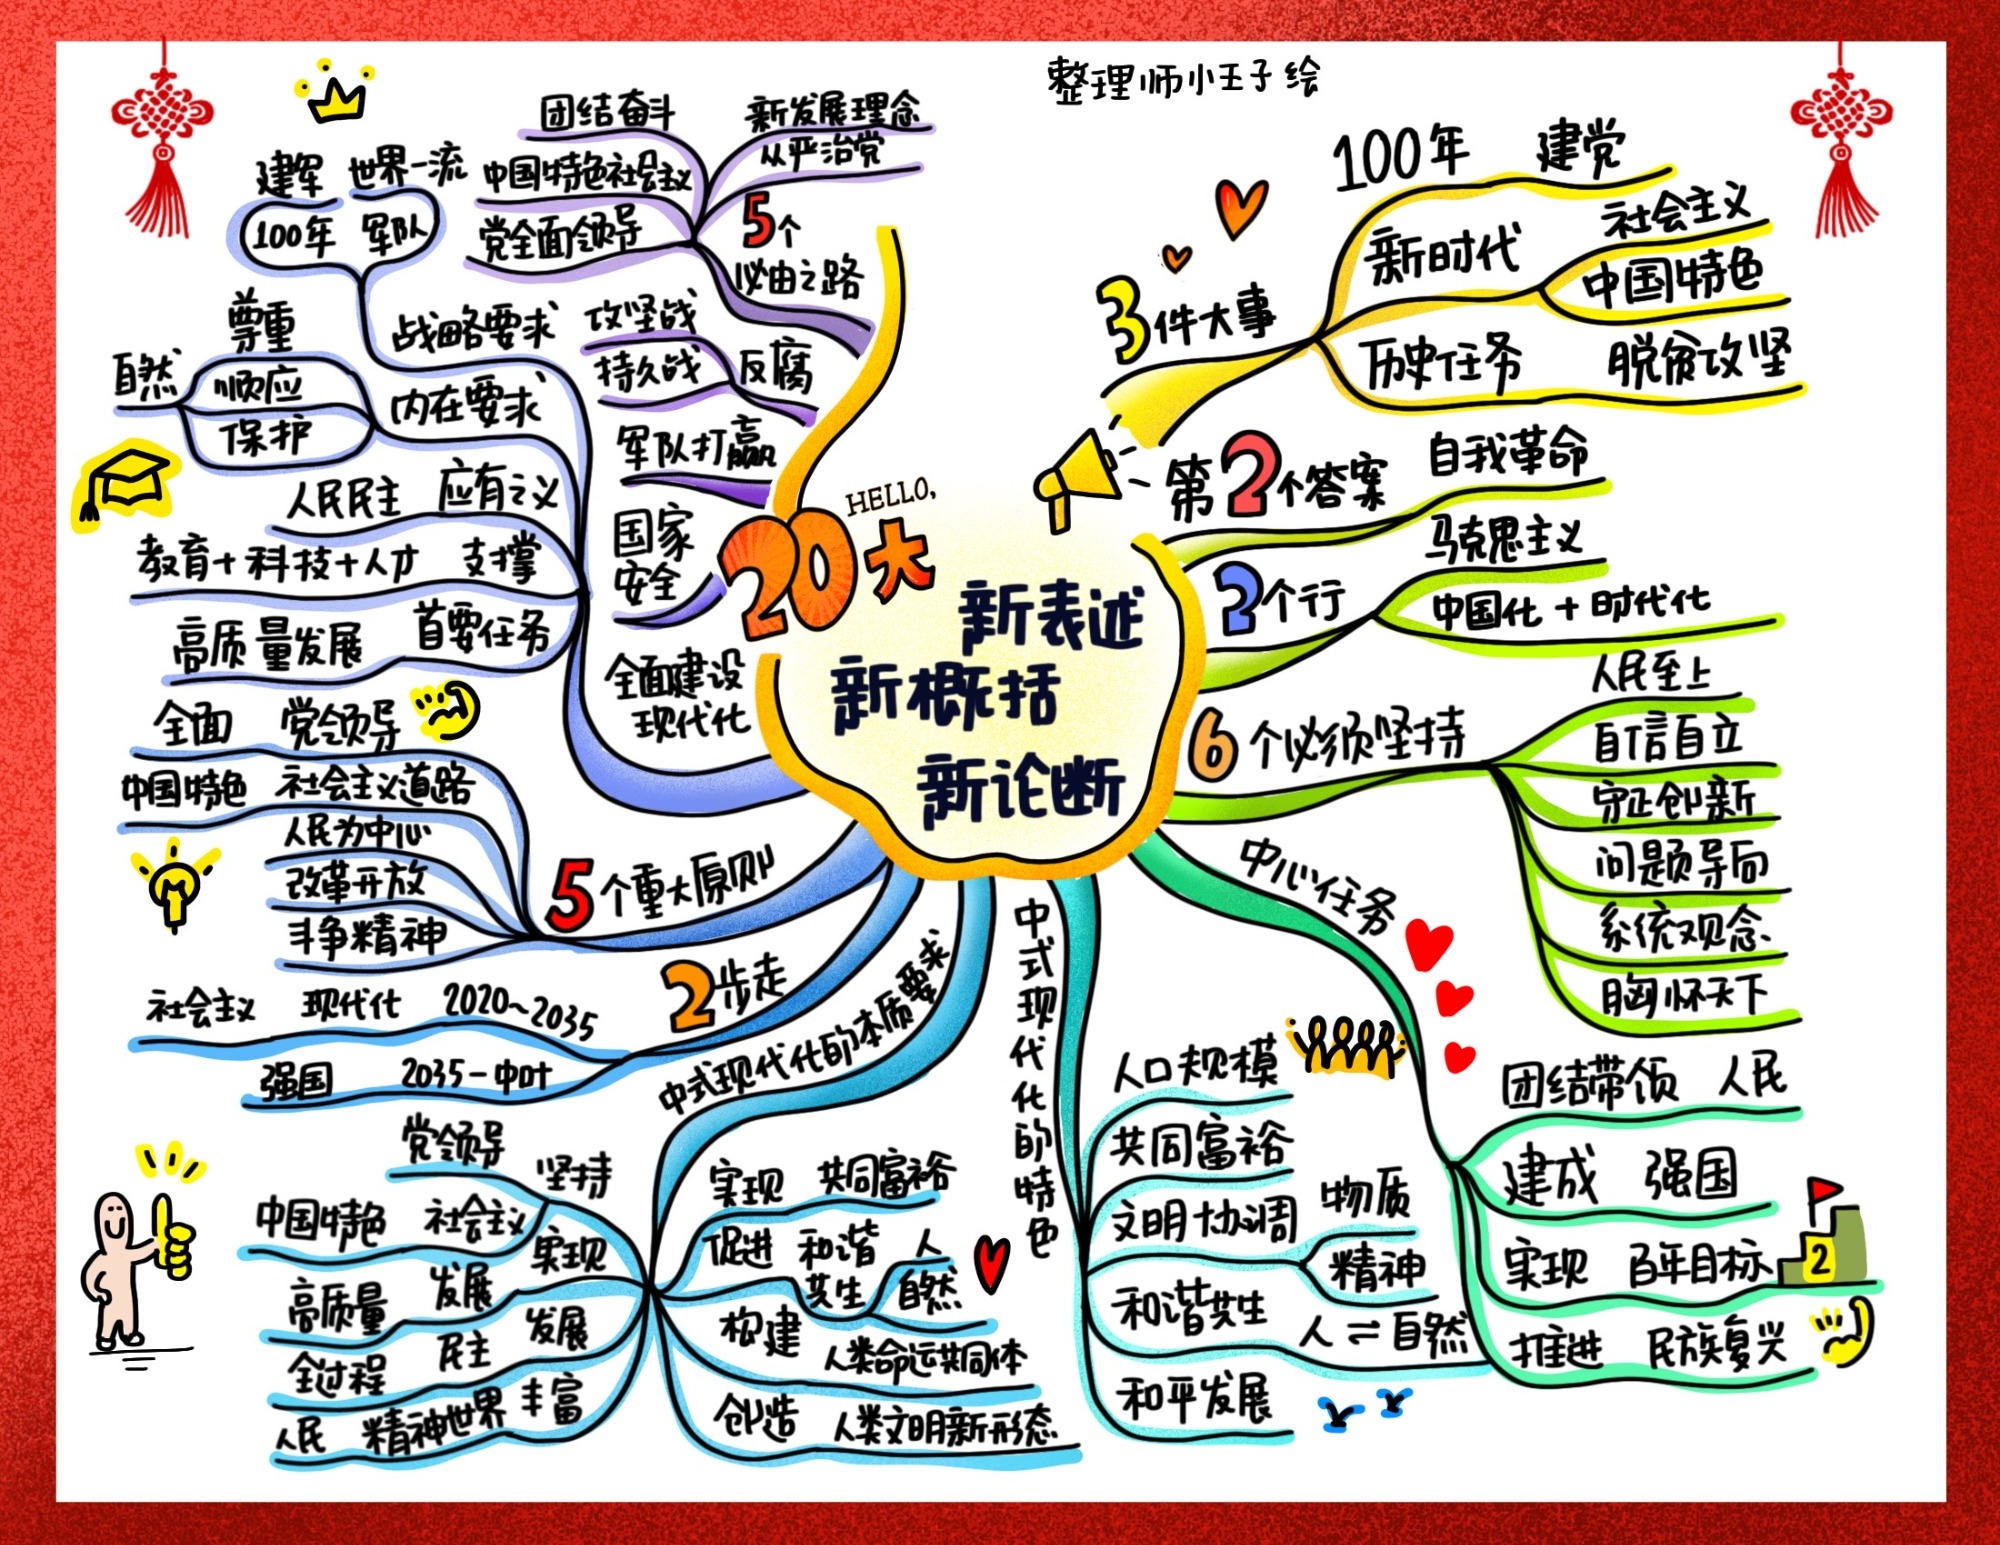 整理师小王子绘
HELLO,
20大
新表述
新概括
新论断
3件大事
100年 建党
新时代
社会主义
中国特色
历史任务 脱贫攻坚
第2个答案
自我革命
2个行
马克思主义
中国化+时代化
6个必须坚持
人民至上
自信自立
守正创新
问题导向
系统观念
胸怀天下
中心任务
团结带领 人民
建成 强国
实现 百年目标
2
推进 民族复兴
中式现代化的特色
人口规模
共同富裕
文明协调
物质
精神
和谐共生
人⇌自然
和平发展
中式现代化的本质要求
坚持
党领导
中国特色 社会主义
实现
高质量 发展
发展
全过程 民主
丰富
人民 精神世界
实现 共同富裕
促进 和谐
共生
人
自然
构建
人类命运共同体
创造 人类文明新形态
2步走
社会主义 现代化 2020~2035
强国 2035-中叶
5个重大原则
全面 党领导
中国特色 社会主义道路
人民为中心
改革开放
斗争精神
全面建设
现代化
战略要求
建军 世界一流
100年 军队
内在要求
尊重
顺应
保护
自然
人民民主 应有之义
教育+科技+人才 支撑
高质量发展 首要任务
国家
安全
军队打赢
反腐
攻坚战
持久战
5个
必由之路
团结奋斗
中国特色社会主义
党全面领导
新发展理念
从严治党